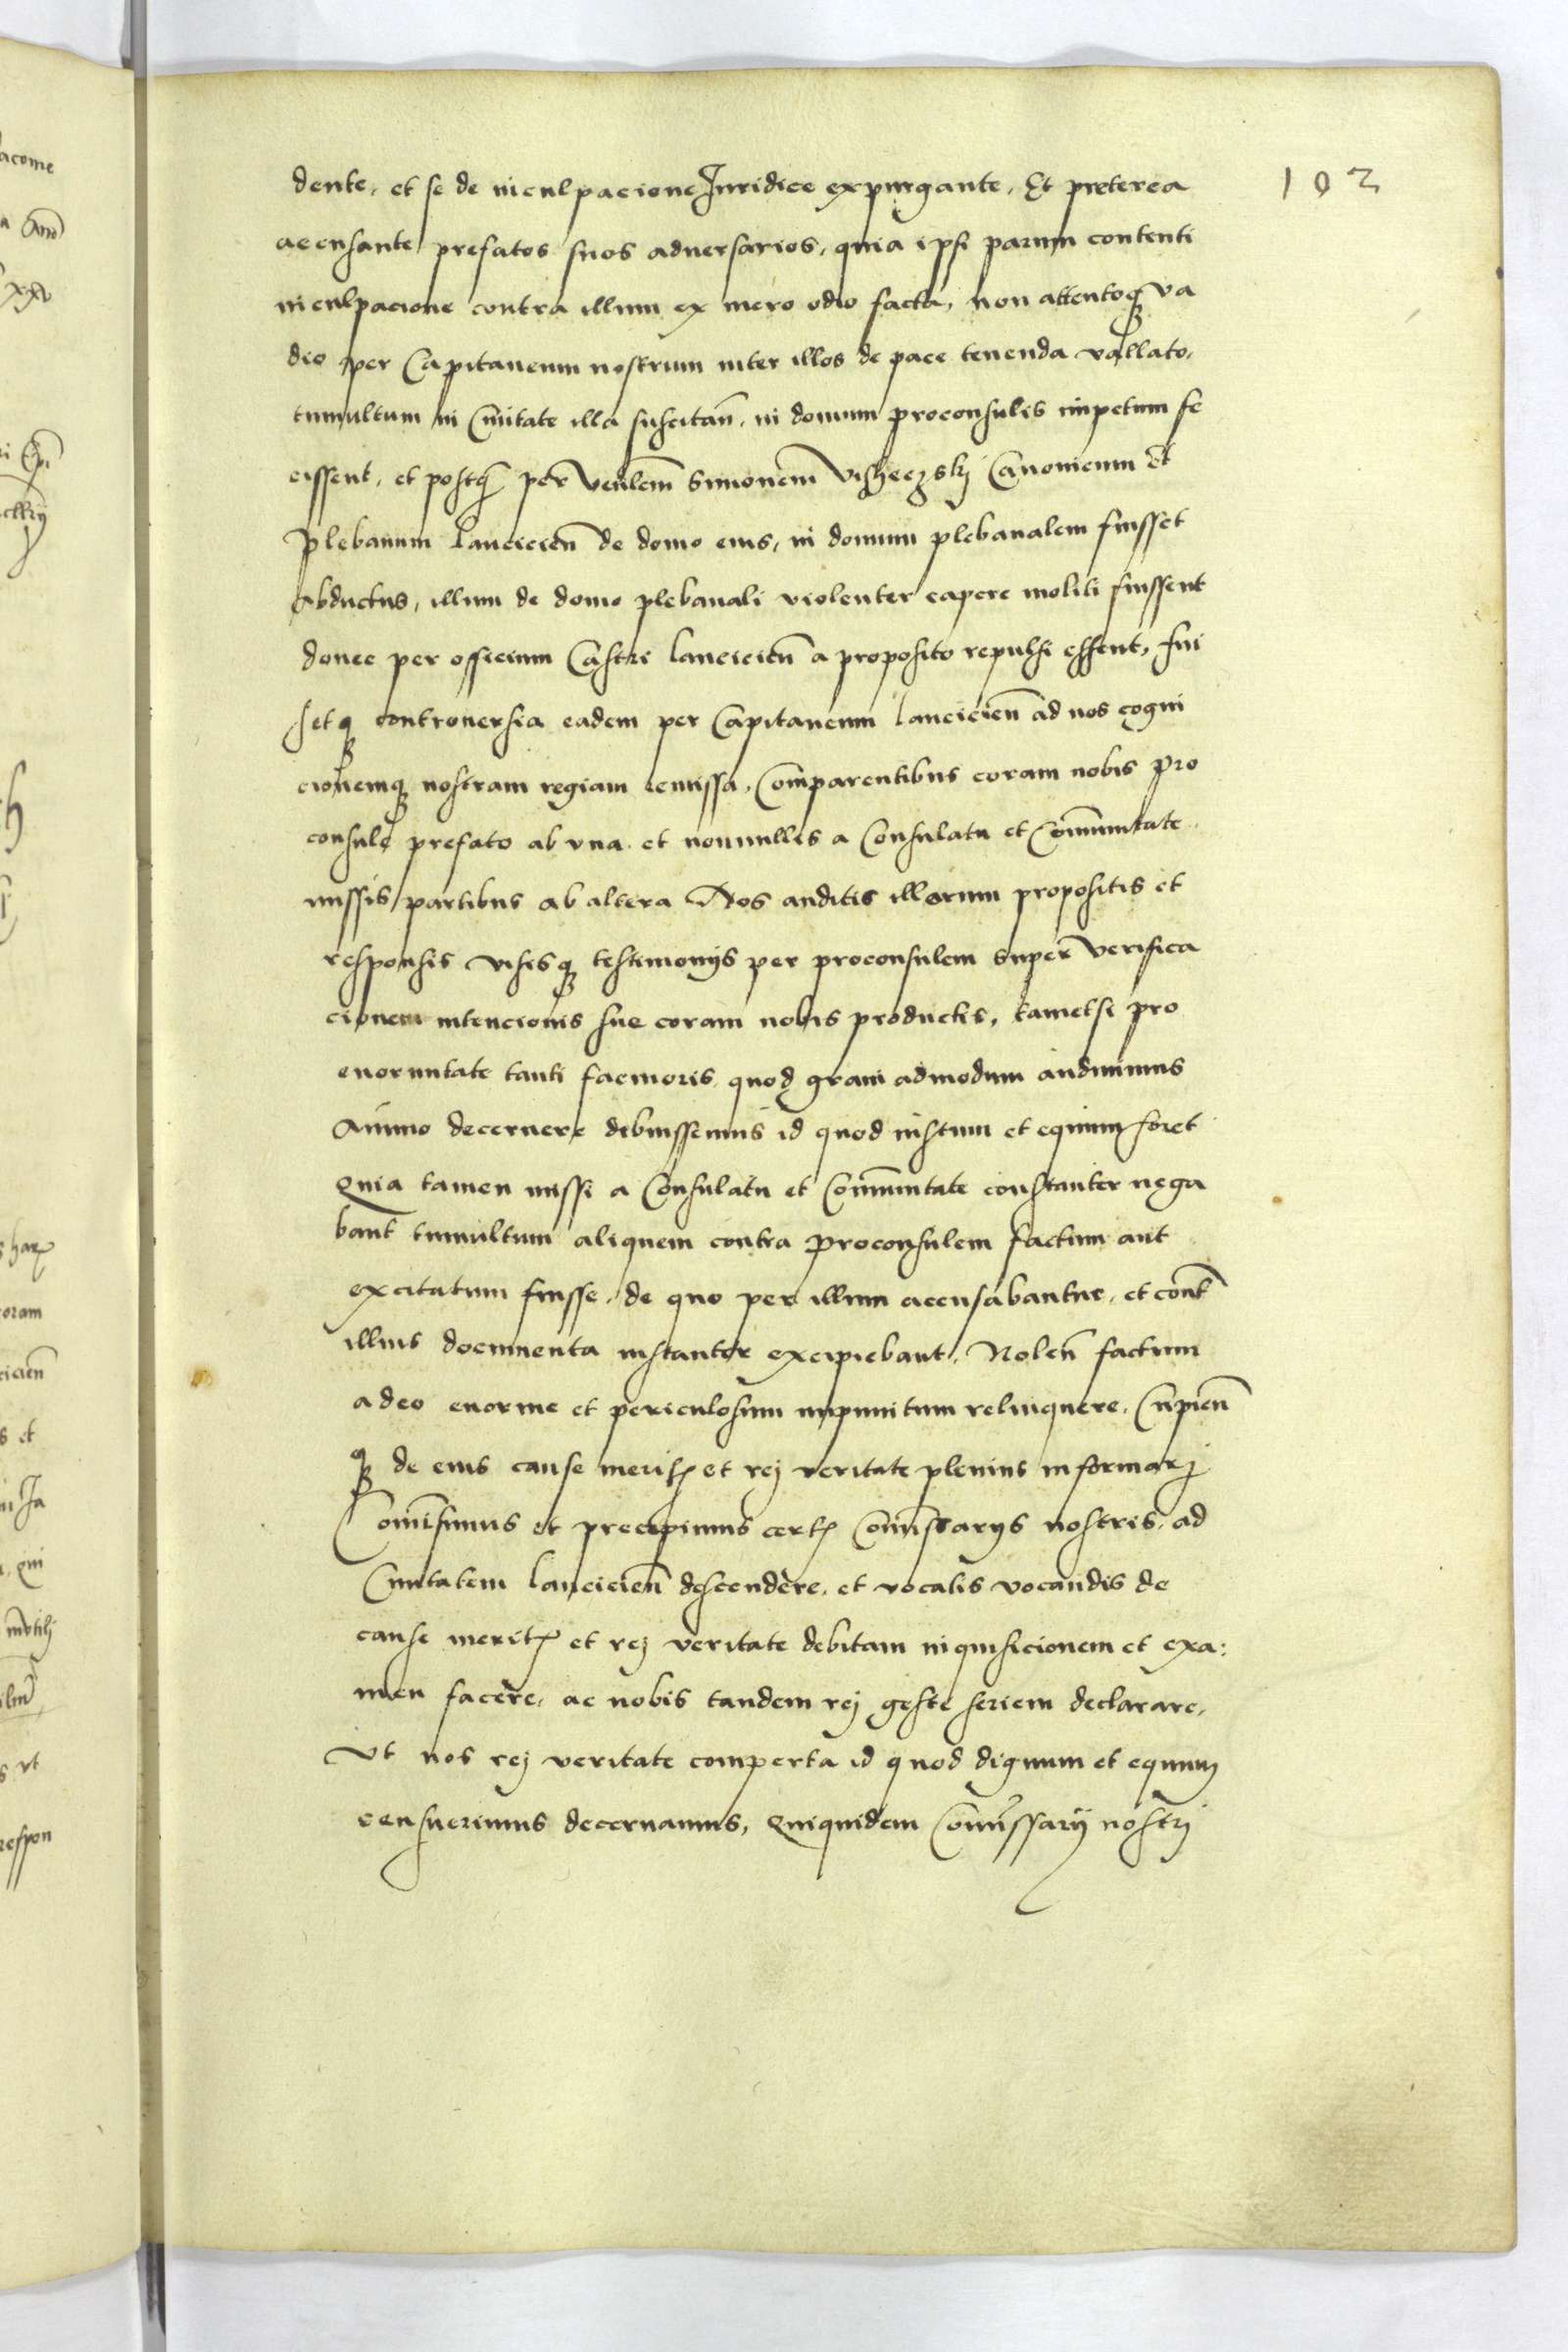 102
dente, et se de inculpacione Juridice expurgante, Et preterea
accusante prefatos suos adversarios, quia ipsi parum contenti
inculpacione contra illum ex mero odio facta, non attentoq̃ va
dio per Capitaneum nostrum inter illos de pace tenenda vallato,
tumultum in Civitate illa suscitañ, in domum proconsulis impetum fe
cissent, et postq̃ per Veñlem Simonem Canonicum et
Plebanum lancicień de domo eius, in domum plebanalem fuisset
abductus, illum de domo plebanali violenter capere moliti fuissent
donec per officium Castri lancicień a proposito repulsi essent, fui
setq̃ controversia eadem per Capitaneum lancicień ad nos cogni
cionemq̃ nostram regiam remissa, Comparentibus coram nobis pro
consule prefato ab vna et nonnullis a Consulatu et Com̃unitate
missis partibus ab altera Nos auditis illorum propositis et
responsis visisq̃ testimonijs per proconsulem super verifica
cionem intencionis sue coram nobis productis, tametsi pro
enormitate tanti facinoris quod gravi admodum audivimus
Animo decernere debuissemus id quod iustum et equum foret
Quia tamen missi a Consulatu et Com̃unitate constanter nega
bant tumultum aliquem contra proconsulem factum aut
excitatum fuisse, de quo per illum accusabantur, et cont̃
illius documenta instanter excipiebant, Noleñ factum
adeo enorme et periculosum impunitum relinquere, Cupieñ
q̃ de eius cause meritis et rej veritate plenius informarj
Com̃isimus et precepimus certis Com̃issarijs nostris, ad
Civitatem lancicień descendere, et vocatis vocandis de
cause meritis et rej veritate debitam inquisicionem et exa:
men facere, ac nobis tandem rej geste seriem declarare,
Vt nos rej veritate comperta id quod dignum et equum
censuerimus decernamus, Quiquidem Com̃issarij nostrj